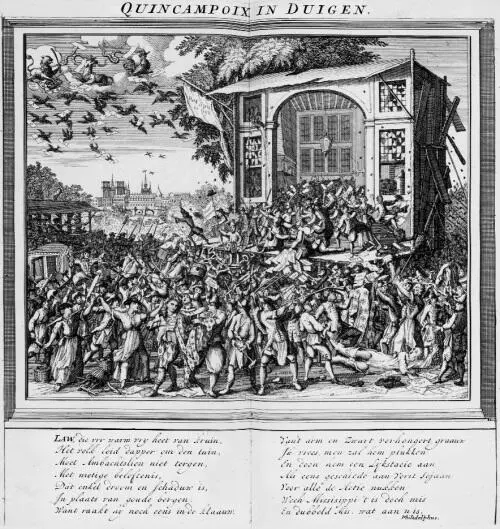 QUINCAMPOIX IN DUIGEN.
LAW, die vry warm vry heet van kruin,
Het volk leid dapper om den tuin,
Moet Ambachtslien niet tergen,
Met nietige beloftenis,
Dat enkel droom en Schaduw is,
In plaats van goude bergen
Want raakt ny noch eens in de klaauw.
Vant arm en Zwart verhongert graauw
In vrees, men zal hem plukken
En doen hem een Lykstacie aan
Als eens geschiede aan Vorst Sejaan
Voor all de Actie nukken
Weth Missisippi t is doch mis
En duebbeld Als, wat aan u is.
Philadelphus.